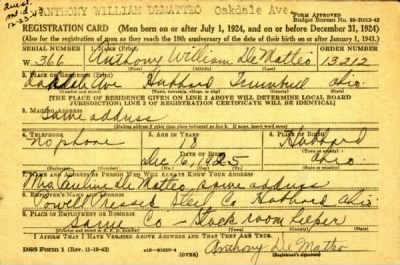 ANTHONY WILLIAM DEMATTEO Oakdale Ave
FORM APPROVED
REGISTRATION CARD (Men born on or after July 1, 1924, and on or before December 31, 1924)
(Also for the registration of men as they reach the 18th anniversary of the date of their birth on or after January 1, 1943.)
SERIAL NUMBER 1. NAME (Print) ORDER NUMBER
W. 366 Anthony William De Matteo 13212
2. PLACE OF RESIDENCE (Print)
Oakdale Ave Hubbard Trumbull Ohio
[THE PLACE OF RESIDENCE GIVEN ON LINE 2 ABOVE WILL DETERMINE LOCAL BOARD
JURISDICTION; LINE 2 OF REGISTRATION CERTIFICATE WILL BE IDENTICAL]
3. MAILING ADDRESS
Same address
4. TELEPHONE 5. AGE IN YEARS 6. PLACE OF BIRTH
no phone 18 Hubbard
DATE OF BIRTH
6, 1925 Ohio
7. NAME AND ADDRESS OF PERSON WHO WILL ALWAYS KNOW YOUR ADDRESS
Mrs. Pauline De Matteo same address
8. EMPLOYER'S NAME AND ADDRESS
Powell Pressed Steel Co Hubbard Ohio
9. PLACE OF EMPLOYMENT OR BUSINESS
same Co - Stock room keeper
I AFFIRM THAT I HAVE VERIFIED ABOVE ANSWERS AND THAT THEY ARE TRUE.
DSS Form 1 (Rev. 11-16-42) (OVER) Anthony De Matteo
(Registrant's signature)